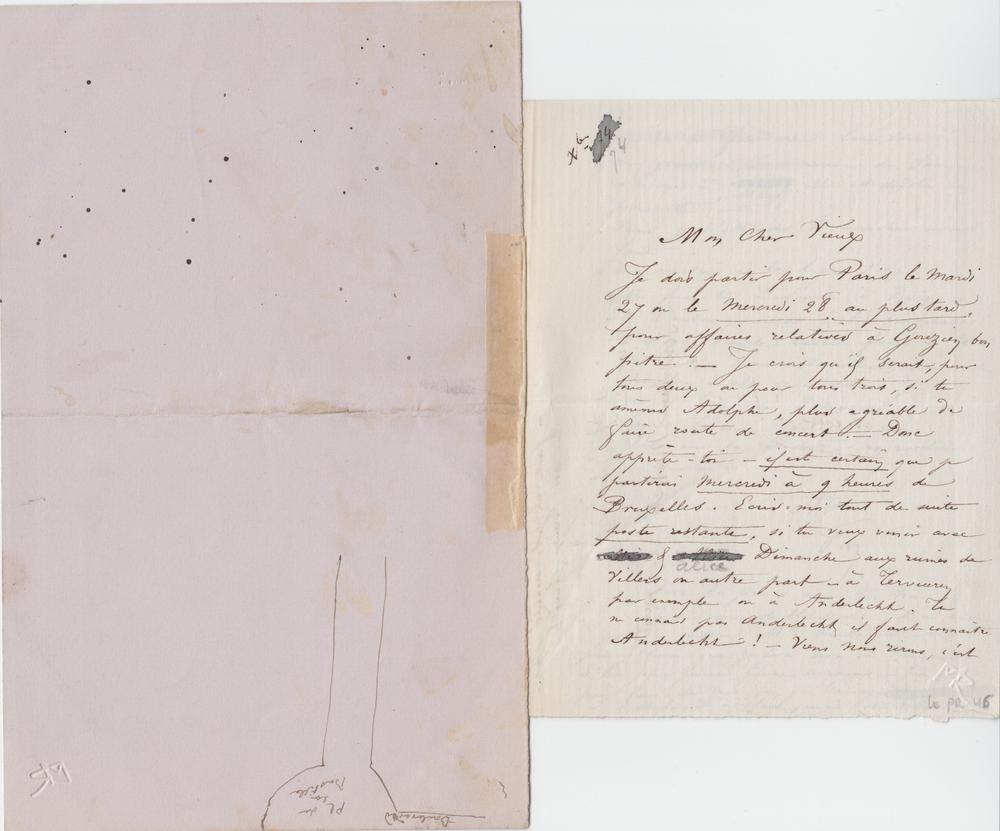 Pl
de
la
Bastille
Boulevard
74
Mon Cher Vieux
Je dois partir pour Paris le mardi
27 ou le Mercredi 28 au plus tard,
pour affaires relatives à Gouzien bon
pitre. — Je crois qu'il serait, pour
tous deux ou pour tous trois, si tu
amènes Adolphe, plus agréable de
faire route de concert. — Donc
apprête-toi — il est certain que je
partirai Mercredi à 9 heures de
Bruxelles. Ecris-moi tout de suite
poste restante, si tu veux venir avec
& Dimanche aux ruines de
alice
Villers ou autre part — à Tervueren
par exemple ou à Anderlecht. Tu
ne connais pas Anderlecht, il faut connaître
Anderlecht ! — Viens nous rirons, c'est
Le PR 46